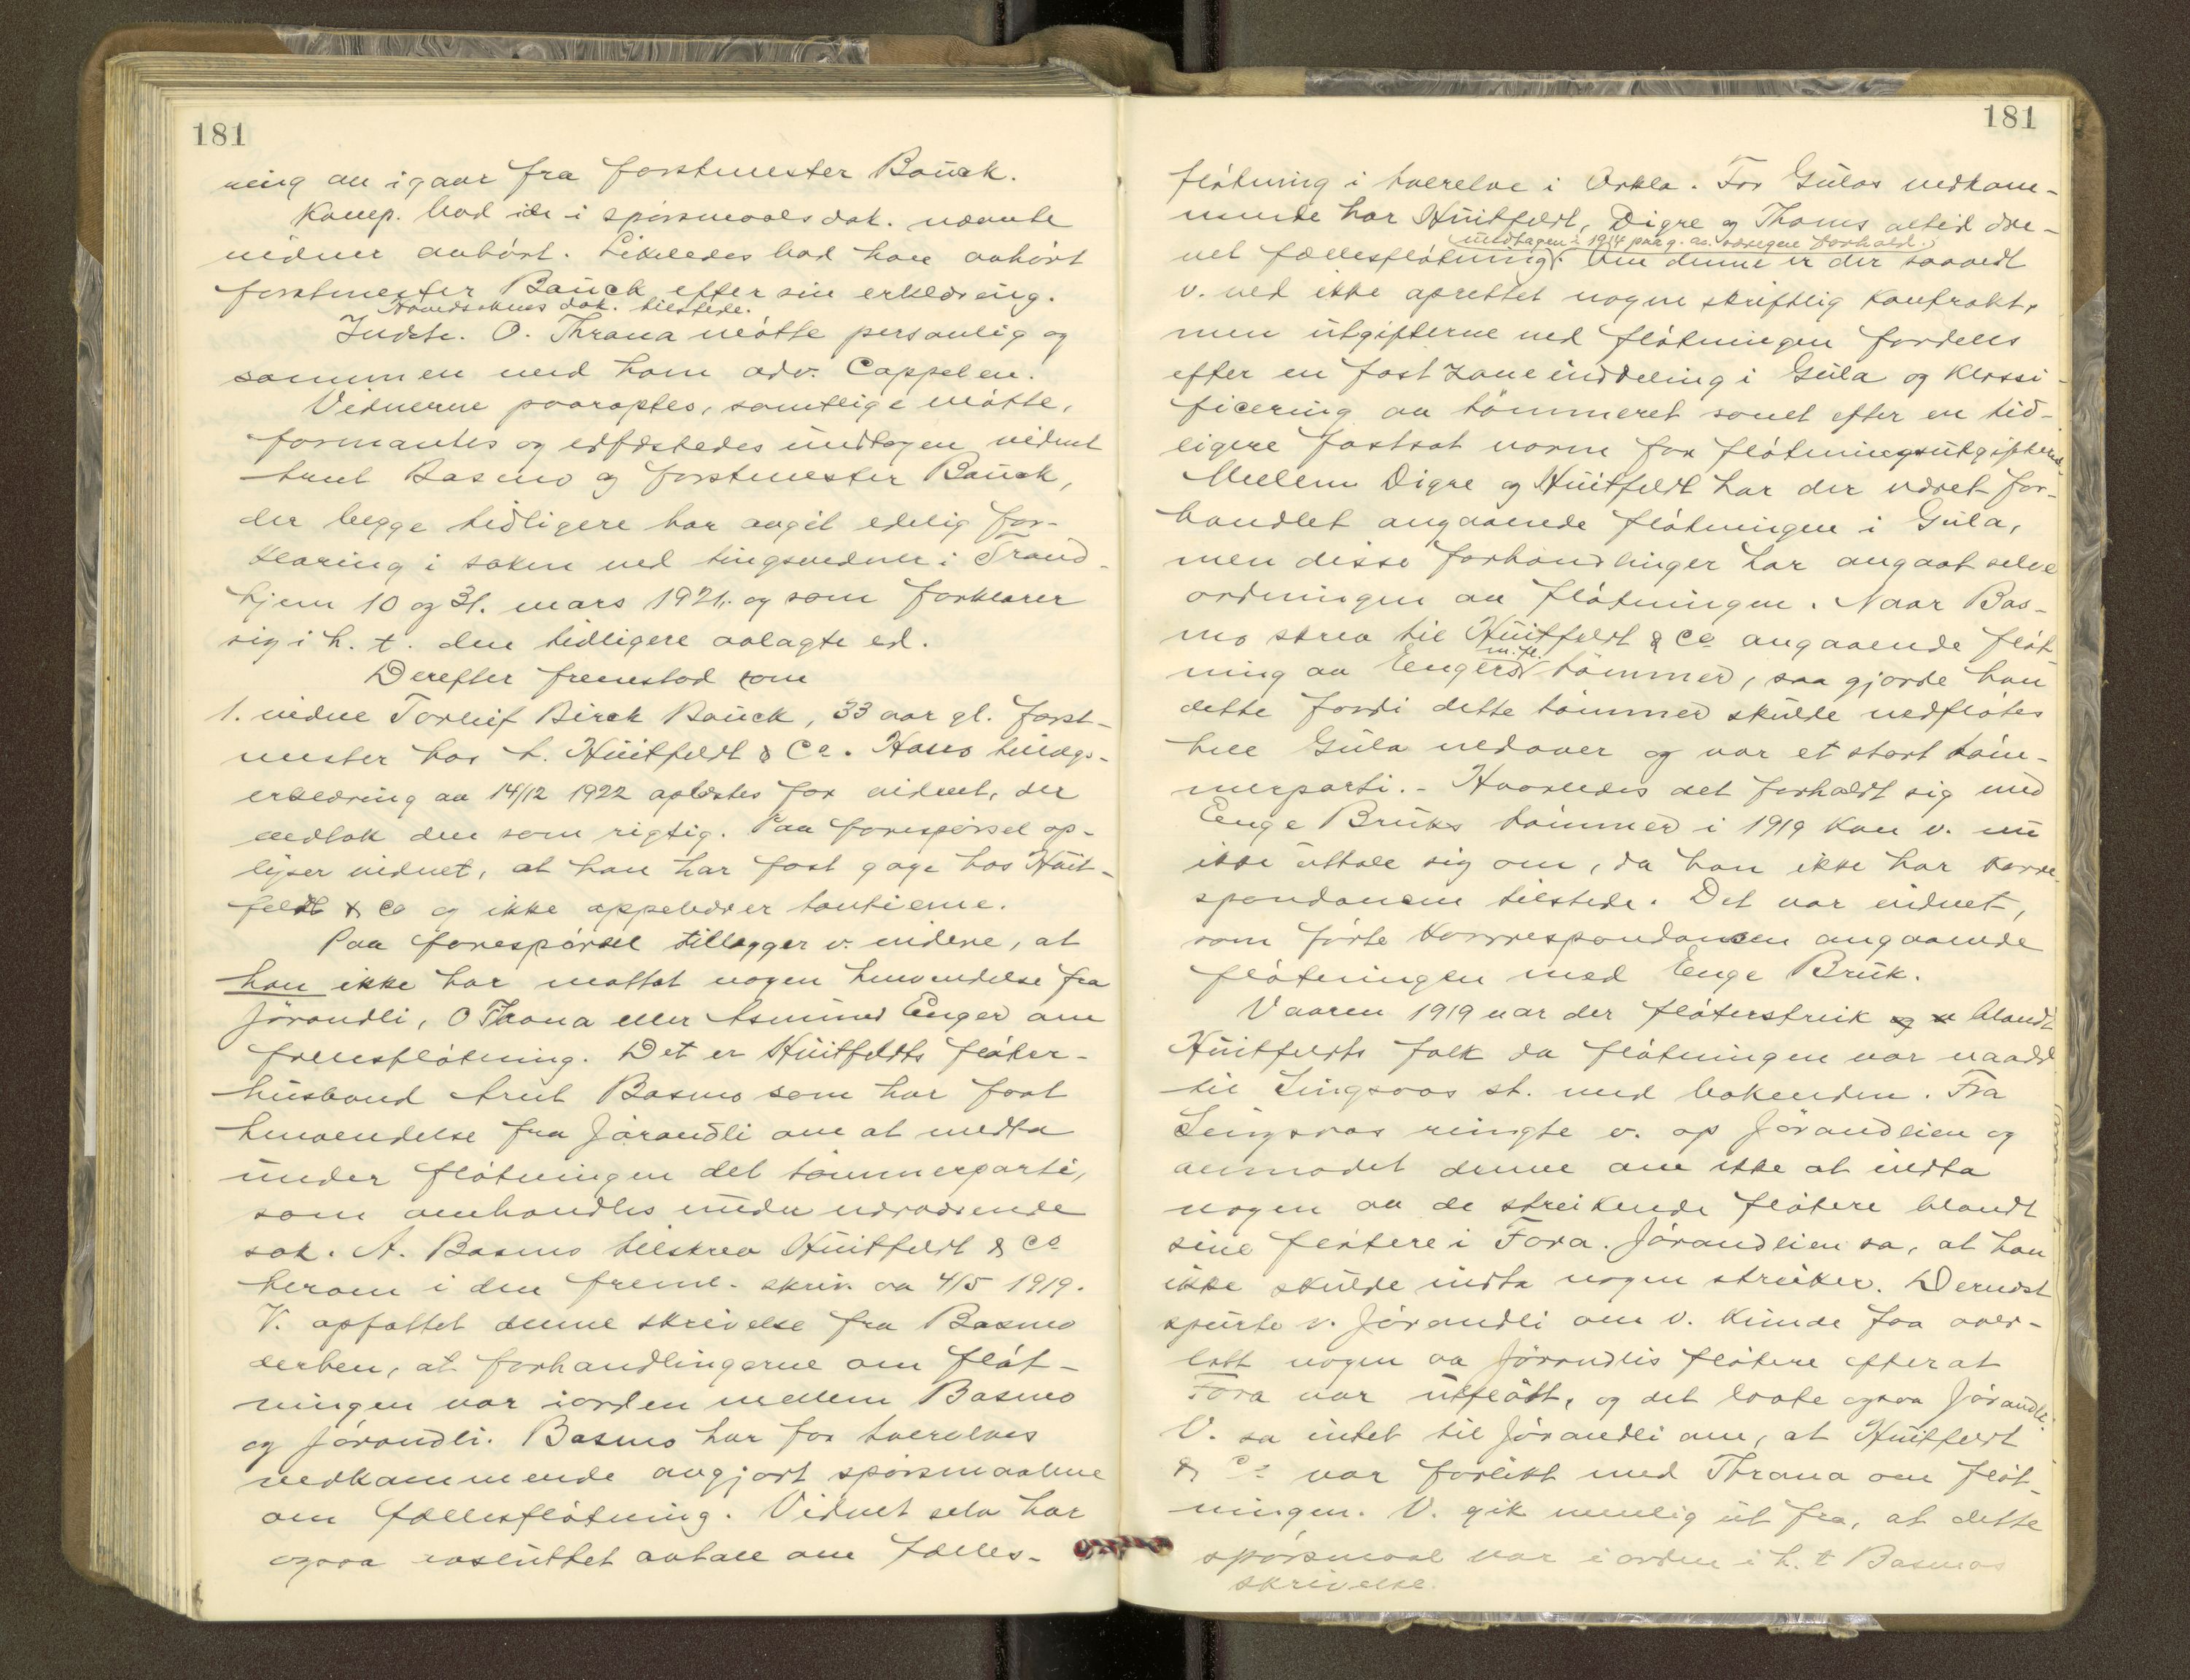 181
ning av igaar fra forstmester Bauck.
Komp. bad de i spørsmaals dok. nævnte
vidner avhørt. Likeledes bad han avhørt
forstmester Bauck efter sin erklæring.
Hovedsakens dok. tilstede.
Indst. O. Thrana møtte personlig og
sammen med ham adv. Cappelen.
Vidnerne paaroptes, samtlige møtte,
formantes og edfæstedes undtagen vidnet
Arnt Basmo og forstmester Bauck,
der begge tidligere har avgit edelig for-
klaring i saken ved tingsvidner i Trond-
hjem 10 og 31. mars 1921, og som forklarer
sig i h. t. den tidligere avlagte ed.
Derefter fremstod som
1. vidne Torleif Birch Bauck, 33 aar gl. forst-
mester hos H. Huitfeldt & Co. Hans tilvægs-
erklæring av 14/12 1922 oplæstes for vidnet, der
vedtok den som rigtig. Paa forespørsel op-
lyser vidnet, at han har fast gage hos Huit-
feldt & Co og ikke oppebærer tantieme.
Paa forespørsel tillægger v. videre, at
han ikke har mottat nogen henvendelse fra
Jørandli, O Thrana eller Asmund Enger om
fremfløtning. Det er Huitfeldts fløter-
husbond Arnt Basmo som har faat
henvendelse fra Jørandli om at medta
under fløtningen det tømmerparti,
som omhandles under nærværende
sak. A. Basmo tilskrev Huitfeldt & Co
herom i den freml. skriv. av 4/5 1919.
V. opfattet denne skrivelse fra Basmo
derhen, at forhandlingerne om fløt-
ningen var iorden mellem Basmo
og Jørandli. Basmo har for tverelves
vedkommende avgjort spørsmaalene
om fællesfløtning. Vidnet selv har
ogsaa avsluttet avtale om fælles-
181
fløtning i tverelve i Orkla. For Gulas vedkom-
mende har Huitfeldt, Digre og Thams altid dre-
undtagen i 1914 paa g. av særegne forhold.
vet fællesfløtning. Om denne er der saavidt
v. ved ikke oprettet nogen skriftlig kontrakt,
men utgifterne ved fløtningen fordeles
efter en fast zoneinddeling i Gula og klassi-
ficering av tømmeret samt efter en tid-
ligere fastsat norm for fløtningsutgifterne.
Mellem Digre og Huitfeldt har der været for-
handlet angaaende fløtningen i Gula,
men disse forhandlinger har angaat selve
ordningen av fløtningen. Naar Bas-
mo skrev til Huitfeldt & Co angaaende fløt
m.fl.
ning av Engers tømmer, saa gjorde han
dette fordi dette tømmer skulde nedfløtes
hele Gula nedover og var et stort tøm-
merparti. - Hvorledes det forholdt sig med
Enge Bruks tømmer i 1919 kan v. nu
ikke uttale sig om, da han ikke har korre-
spondancen tilstede. Det var vidnet,
som førte korrespondancen angaaende
fløtningen med Enge Bruk.
Vaaren 1919 var der fløterstreik blandt
Huitfeldts folk da fløtningen var naadd
til Singsaas st. med bakenden. Fra
Singsaas ringte v. op Jørandlien og
anmodet denne om ikke at indta
nogen av de streikende fløtere blandt
sine fløtere i Fora. Jørandlien sa, at han
ikke skulde indta nogen streiker. Dernæst
spurte v. Jørandli om v. kunde faa over-
latt nogen av Jørandlis fløtere efter at
Fora var utfløtt, og det lovte ogsaa Jørandli.
V. sa intet til Jørandli om, at Huitfeldt
& Co var forlikt med Thrana om fløt-
ningen. V. gik nemlig ut fra, at dette
spørsmaal var i orden i h. t Basmos
skrivelse.